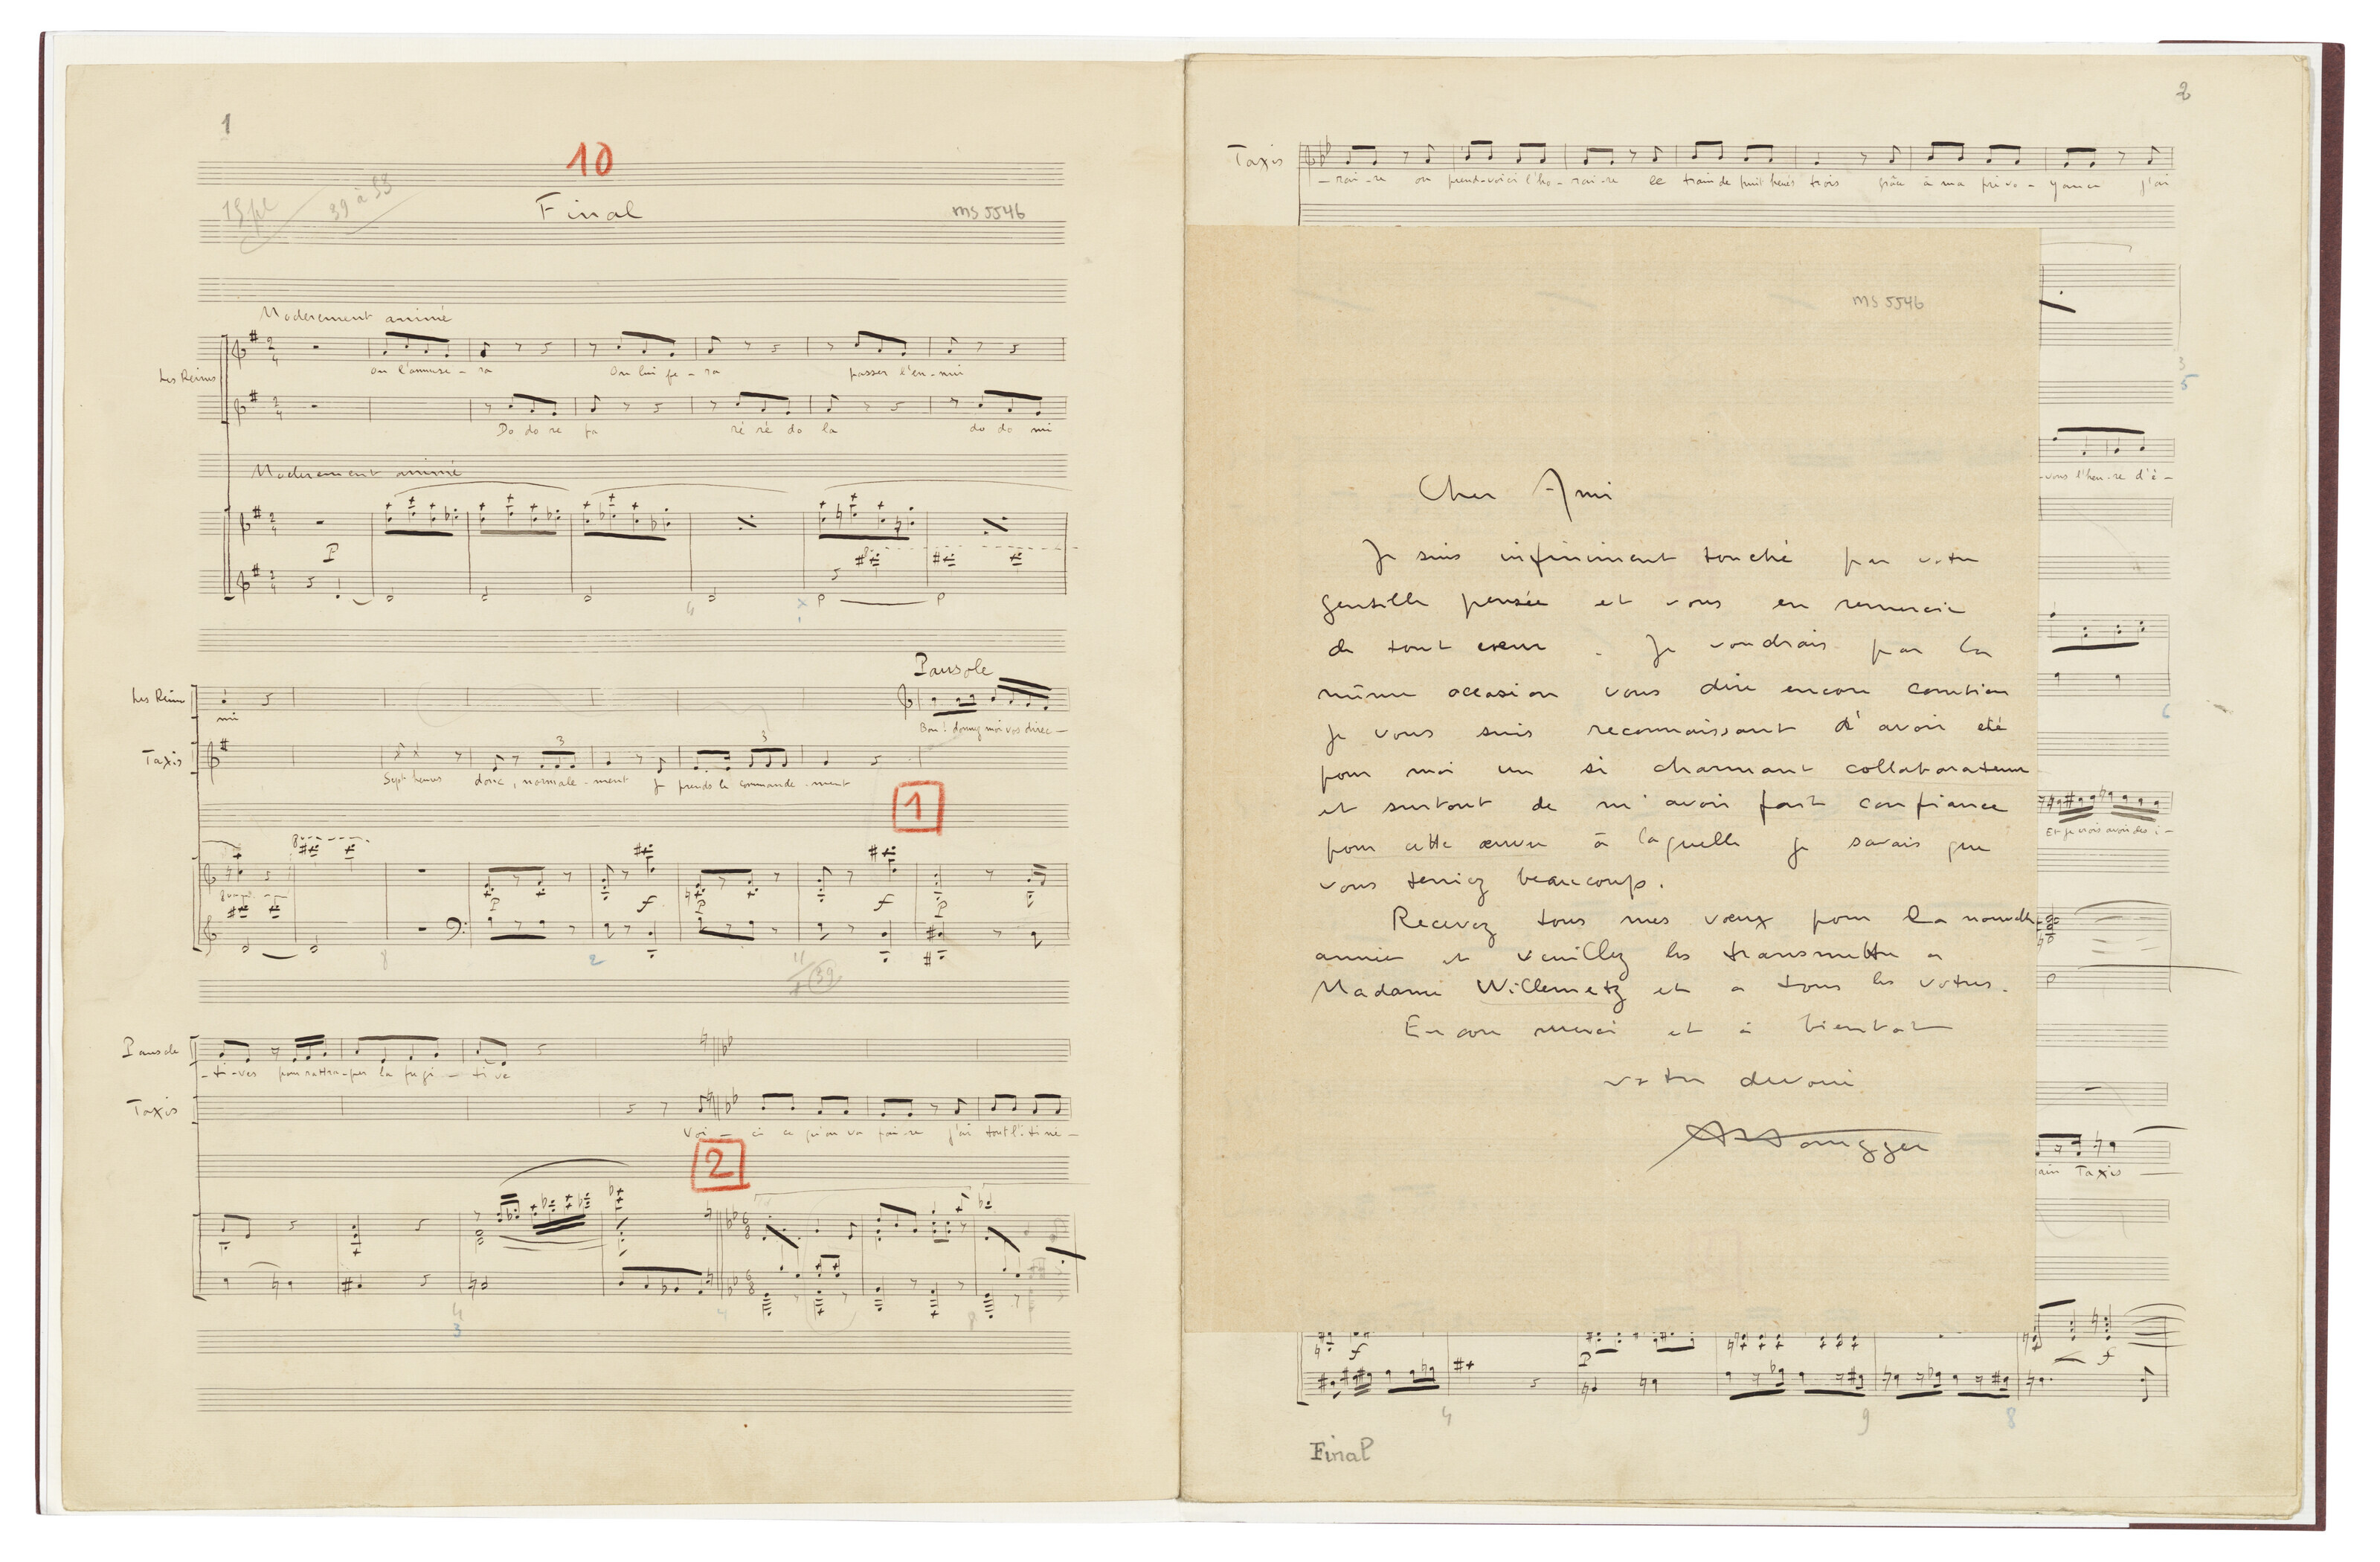 1
10
15 pl
39 à 53
Final
MS 5546
Moderement animé
Les Reines
On l'amuse - ra On lui fe - ra passer l'en - nui
Do do re fa ré ré do la do do mi
Moderement animé
P
Pausole
Les Reines
mi
Bon! donnez moi vos direc -
Taxis
Sept heures donc, normale - ment je prends le commande - ment
3 3
1
8
P f P f P
8 2 4
39
Pausole
- ti - ves pour rattra - per la fugi - ti ve
Taxis
Voi - ci ce qu'on va fai - re j'ai tout l'i ti né -
2
4
3
8
2
Taxis
- rai - re on prend - voici l'ho - rai - re le train de huit heures trois grâce à ma pré vo - yance j'ai
MS 5546
3
5
- vous l'heu - re d'é -
6
Et je crois avoir des i -
Taxis
Cher Ami
Je suis infiniment touché par votre
gentille pensée et vous en remercie
de tout cœur. Je voudrais par la
même occasion vous dire encore combien
je vous suis reconnaissant d'avoir été
pour moi un si charmant collaborateur
et surtout de m'avoir fait confiance
pour cette œuvre à laquelle je savais que
vous teniez beaucoup.
Recevez tous mes vœux pour la nouvelle
année et veuillez les transmettre a
Madame Willemetz et a tous les votres.
Encore merci et à bientot
votre devoué
AHonegger
f P f
4 9 8
Final